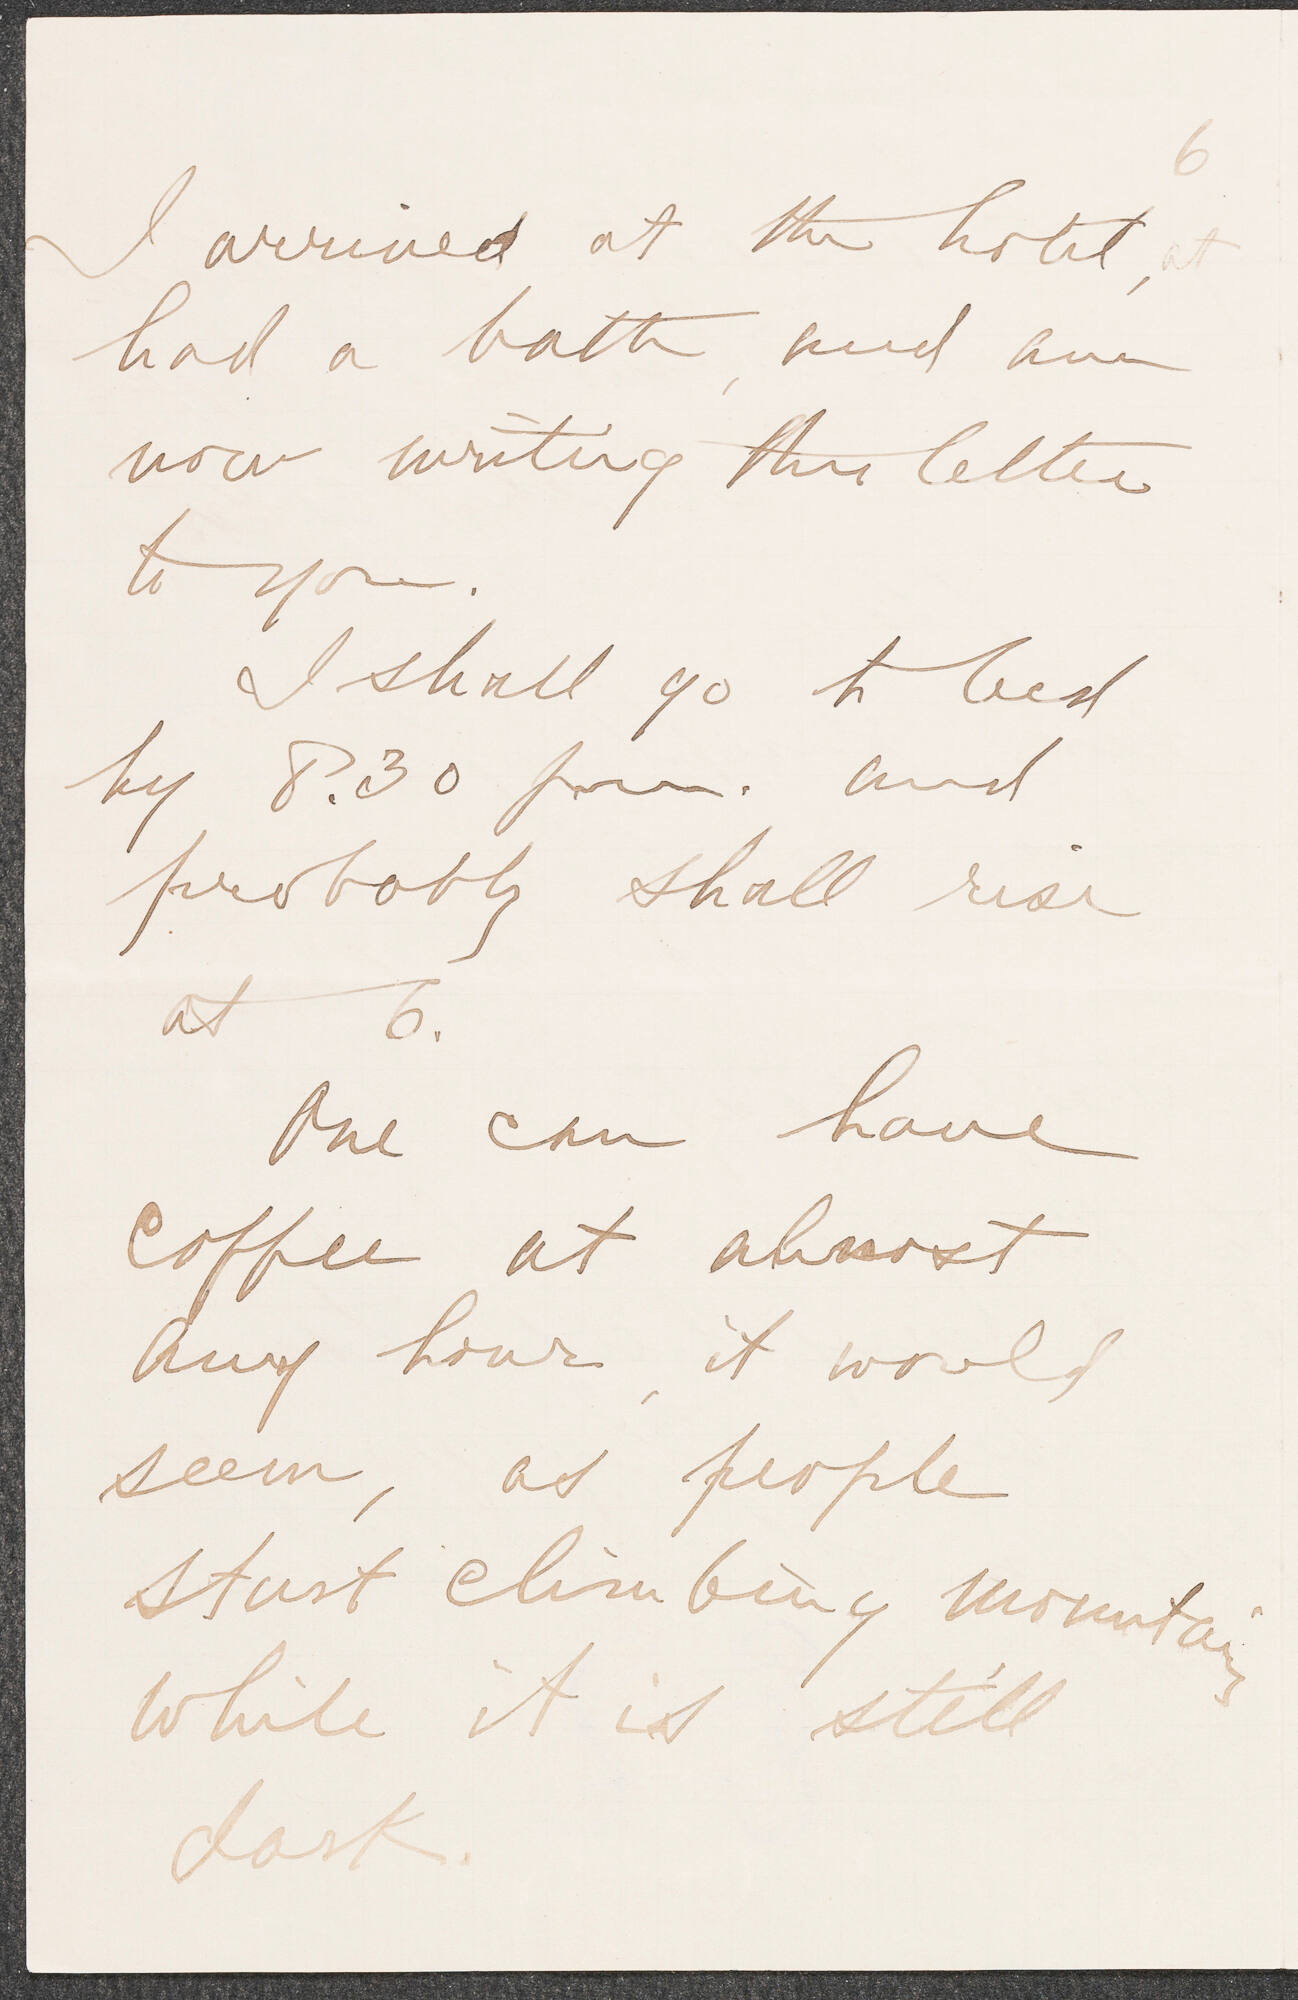 6
I arrived at the hotel, at
had a bath, and am
now writing this letter
to you.
I shall go to bed
by 8.30 p.m. and
probably shall rise
at 6.
One can have
coffee at almost
any hour, it would
seem, as people
start climbing mountains
while it is still
dark.